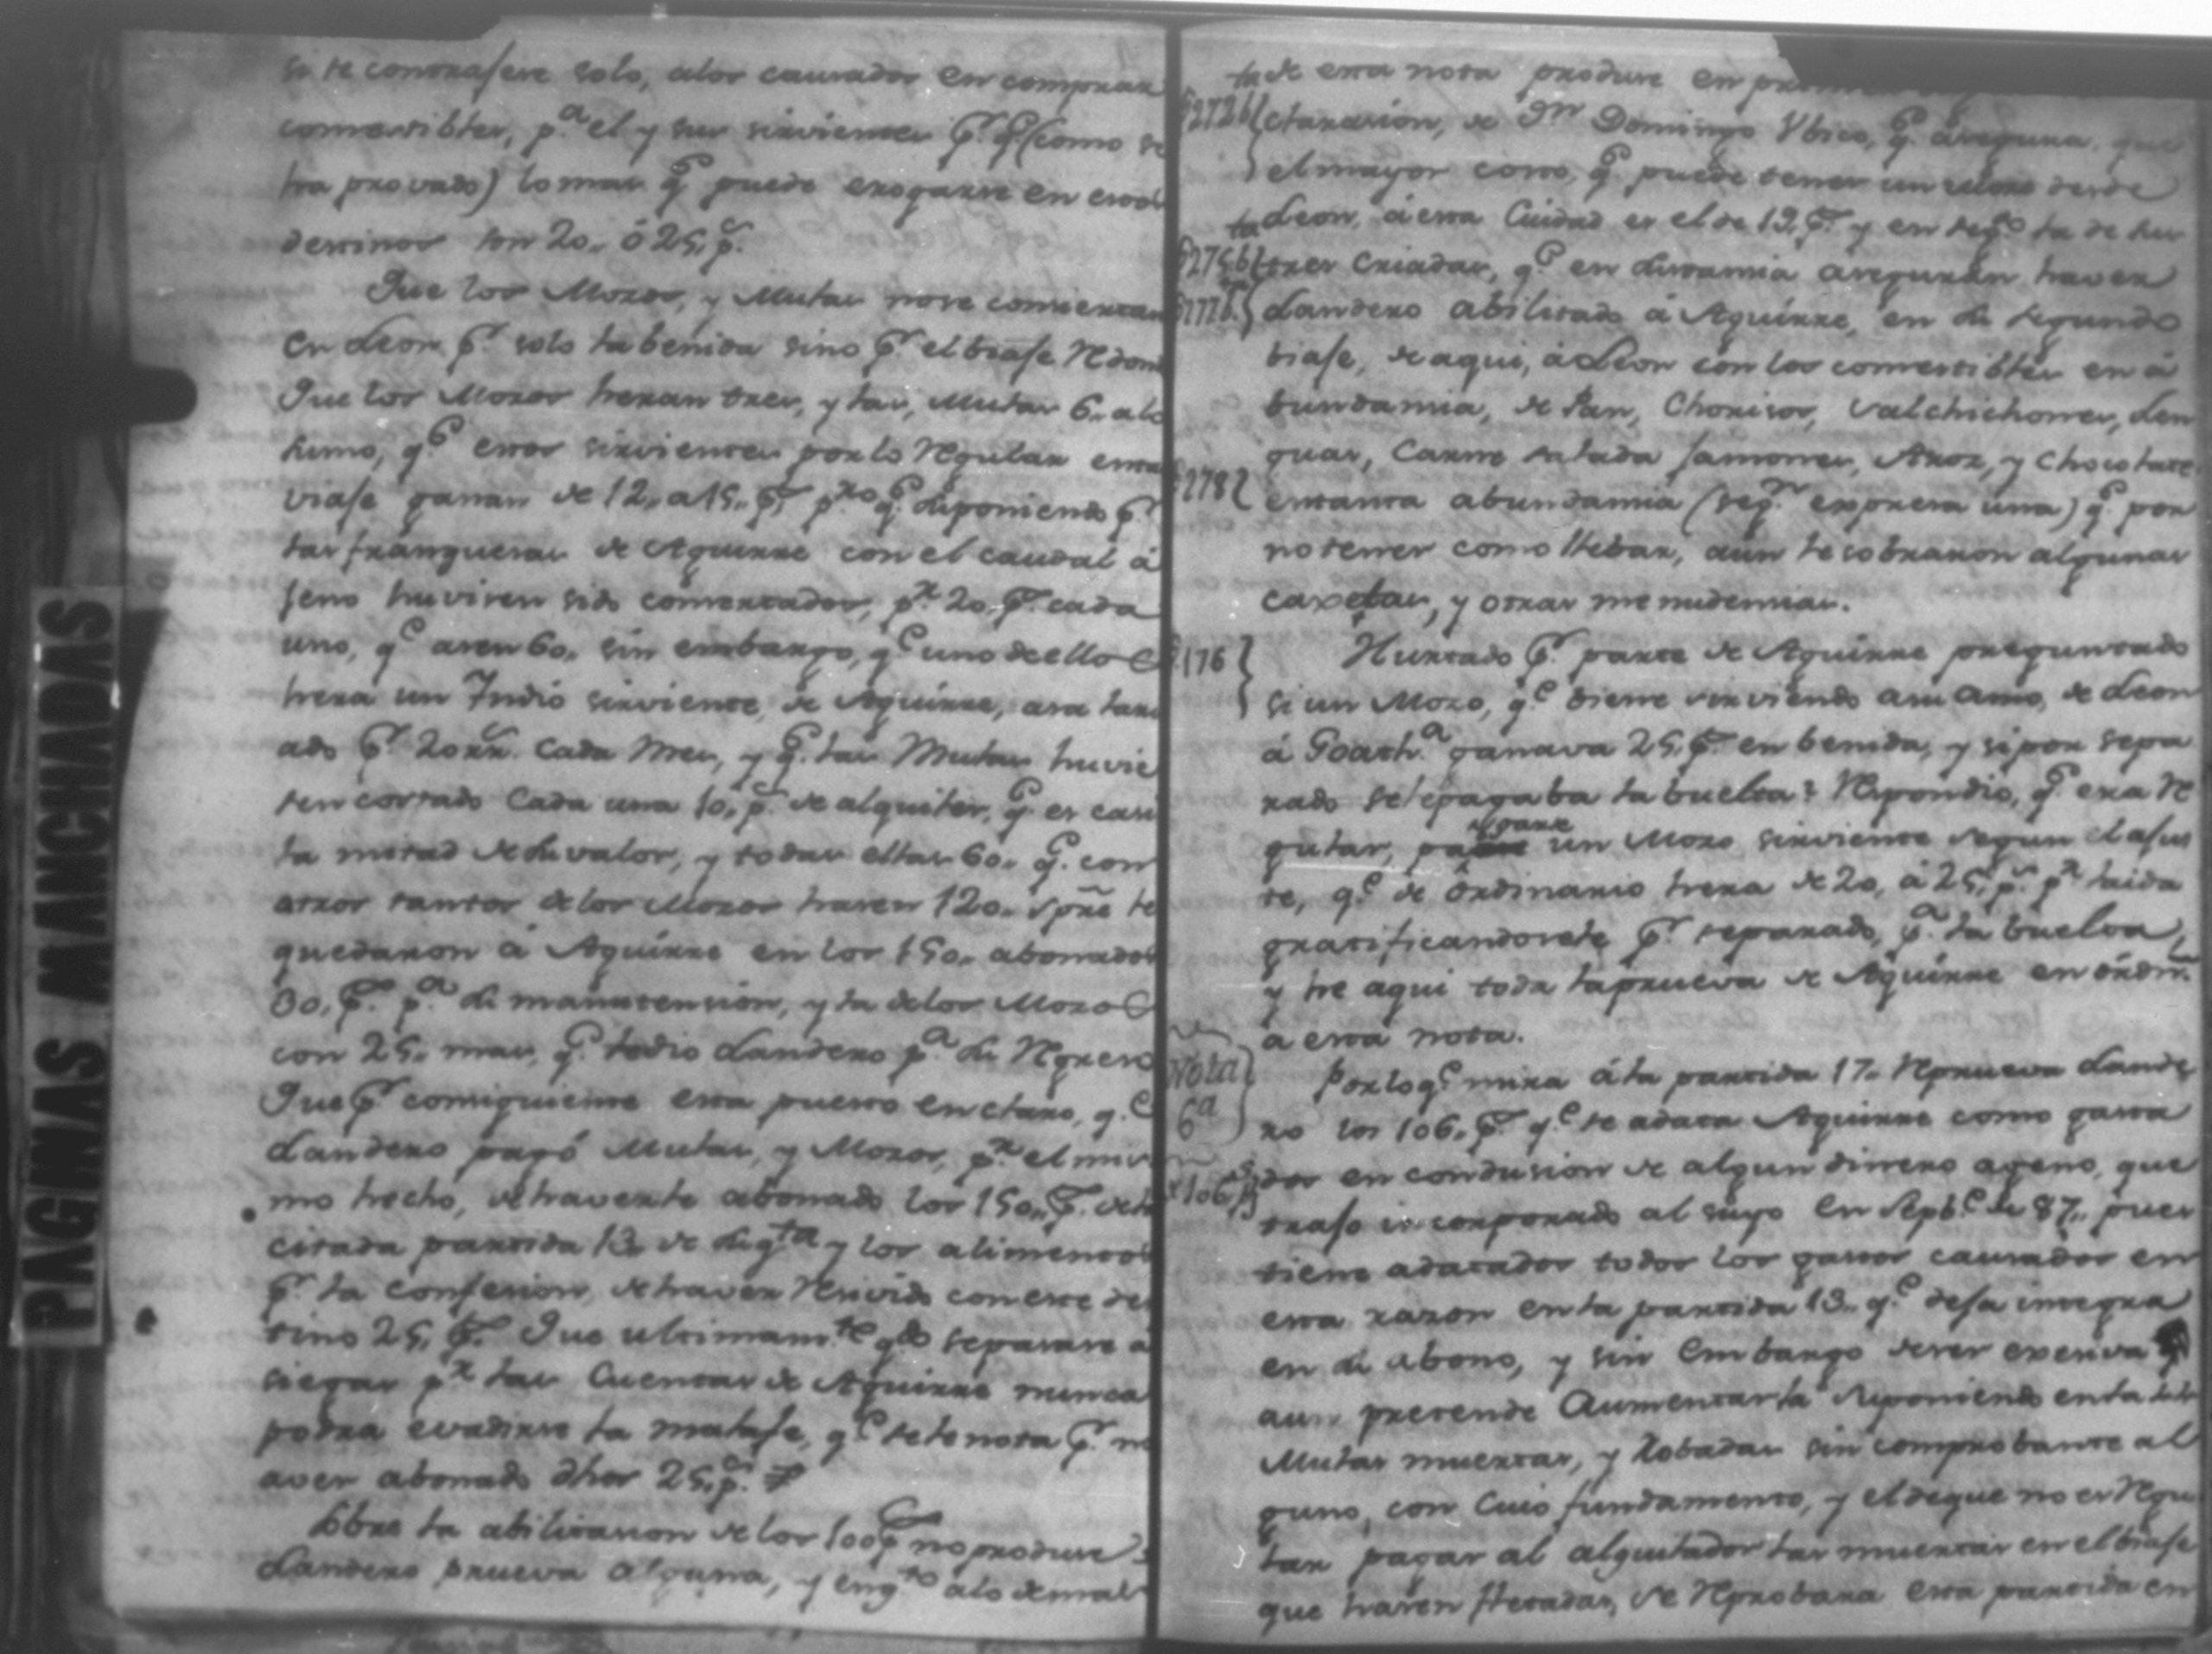 se le contrajere solo, alos causados en comprar
comestibles, p.ª el y sus sirvientes p.r q.e (como se
ha provado) lo mas q.e puede erogarse en esos
destinos son 20,, ó 25,, p.s
Que los Mozos, y Mulas no se conciertan
en Leon p.r solo la benida sino p.r el biaje Redon
Que los Mozos heran tres, y las, Mulas 6,, alo
sumo, q.e esos sirvientes por lo Regular en
viaje ganan de 12,, a 15,, p.s p.ro q.e suponiendo p.r
las franquesas de Aguirre con el caudal á
jeno huvisen sido consertados, p.r 20,, p.s cada
uno, q.e asen 60,, sin embargo, q.e uno de ellos
hera un Indio sirviente, de Aguirre, asa lari
ado p.r 20 rr.s Cada Mes, y q.e las Mulas huvie
sen costado Cada una 10,, p.s de alquiler, q.e es casi
la mitad de su valor, y todas ellas 60,, q.e con
otros tantos de los Mozos hasen 120,, spre le
quedaron á Aguirre en los 150,, abonados
30,, p.s p.ª su manutension, y la delos Mozos
con 25,, mas, q.e le dio Landero p.ª su Regreso
Que p.r consiguiente esta puesto en claro, q.e
Landero pagó Mulas, y Mozos, p.r el mis
mo hecho, de haverle abonado los 150,, p.s de la
citada partida 13 de su q.ta y los alimentos
p.r la confesion, de haver Resivido con ese des
tino 25,, p.s Que ultimam.te q.do separase á
siegar p.r las Cuentas de Aguirre nunca
podra evadirse la malafe, q.e se le nota p.r no
aver abonado dhos 25,, p.s
Sobre la abilitasion de los 100 p.s no produse
Landero prueva alguna, y en q.to alo demas
PAGINAS MANCHADAS
la de esta nota produse en
f 272 b clarasion, de D.n Domingo Ubico, q.e asegura, que
el mayor costo, q.e puede tener un desde
Leon, á esta Ciudad es el de 19,, p.s y en seg.do la de sus
f 275 b tres Criadas, q.e en sustansia aseguran haver
f 277 b Landero abilitado á Aguirre, en su segundo
biaje, de aqui, á Leon con los comestibles en á
bundansia, de Pan, Chorisos, Salchichones, Len
guas, Carne salada Jamones, Arroz, y Chocolate
f 278 en tanta abundansia (seg.n expresa una) q.e por
no tener como llebar, aun le sobraron algunas
caxetas, y otras menudensias.
f 176 Hurtado p.r parte de Aguirre preguntado
si un Mozo, q.e biene sirviendo a su Amo, de Leon
á Goath.ª ganava 25,, p.s en benida, y si por sepa
rado se le pagaba la buelta? Respondio, q.e era Re
gular, un Mozo sirviente segun el ajus
te, q.e de ordinario hera de 20, á 25,, p.s p.r la ida
gratificandosele p.r separado, p.ª la buelta,
y he aqui toda la prueva de Aguirre en órdn.
a esta nota.
Nota 6ª Por lo q.e mira á la partida 17,, Reprueva Lande
ro los 106,, p.s q.e se adata Aguirre como gasta
106 p.s dos en condusion de algun dinero ageno, que
trajo incorporado al suyo en Sepb.e de 87,, pues
tiene adatados todos los gastos causados en
esta razon en la partida 13,, q.e deja integra
en su abono, y sin Embargo de ser exesiva
aun pretende Aumentarla suponiendo en la
Mulas muertas, y Robadas sin comprobante al
guno, con Cuio fundamento, y el de que no es Regu
lar pagar al alquilador las muertas en el biaje
que hasen fletadas, se Reprobara esta partida en